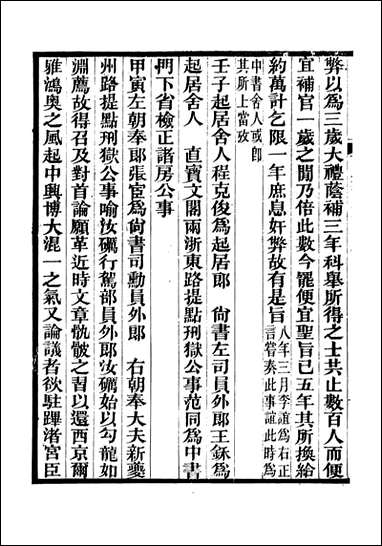 弊以爲三歲大禮蔭補三年科舉所得之士共止數百人而便
宜補官一歲之閒乃倍此數今罷便宜聖旨已五年其所換給
約萬計乞限一年庶息奸弊故有是旨八年三月李誼爲右正
言嘗奏此事誼此時爲
中書舍人或卽
其所上當攷
壬子起居舍人程克俊爲起居郞　尙書左司員外郞王鉌爲
起居舍人　直寶文閣兩浙東路提點刑獄公事范同爲中書
門下省檢正諸房公事
甲寅左朝奉郞張宦爲尙書司勳員外郞　右朝奉大夫新夔
州路提點刑獄公事喻汝礪行駕部員外郞汝礪始以勾龍如
淵薦故得召及對首論願革近時文章骫骳之習以還西京爾
雅鴻奧之風起中興博大混一之氣又論議者欲駐蹕渚宮臣